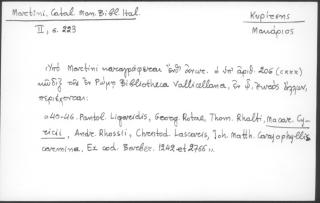 Martini. Catal. Man. Bibl. Ital.
II, σ. 223
Κυρίτσης
Μακάριος
Ὑπὸ Martini καταγράφεται ὑπ' ἀριθ. 206 (CXXX)
κῶδιξ τῆς ἐν Ρώμῃ Bibliotheca Vallicellana, ἐν ᾧ, ἐκτὸς ἄλλων,
περιέχεται:
«40-46. Pantol. Ligaridis, Georg. Rotae, Thom. Rhalti, Macar. Cy-
ricii, Andr. Rhossii, Chrentod. Lascareis, Joh. Matth. Caryophyllis
carmina. Ex cod. Barber. 1242 et 2766».